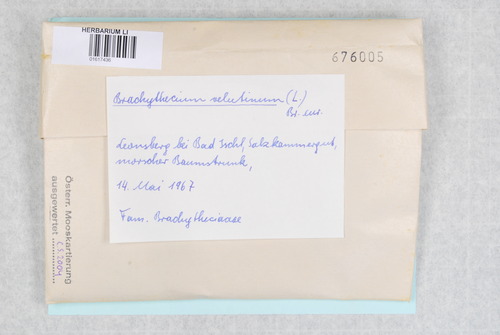 HERBARIUM LI
01617436
676005
Brachythecium velutinum (L.)
Br. eur.
Leonsberg bei Bad Ischl, Salzkammergut,
morscher Baumstrunk,
14. Mai 1967
Fam. Brachytheciaceae
Österr. Mooskartierung
ausgewertet